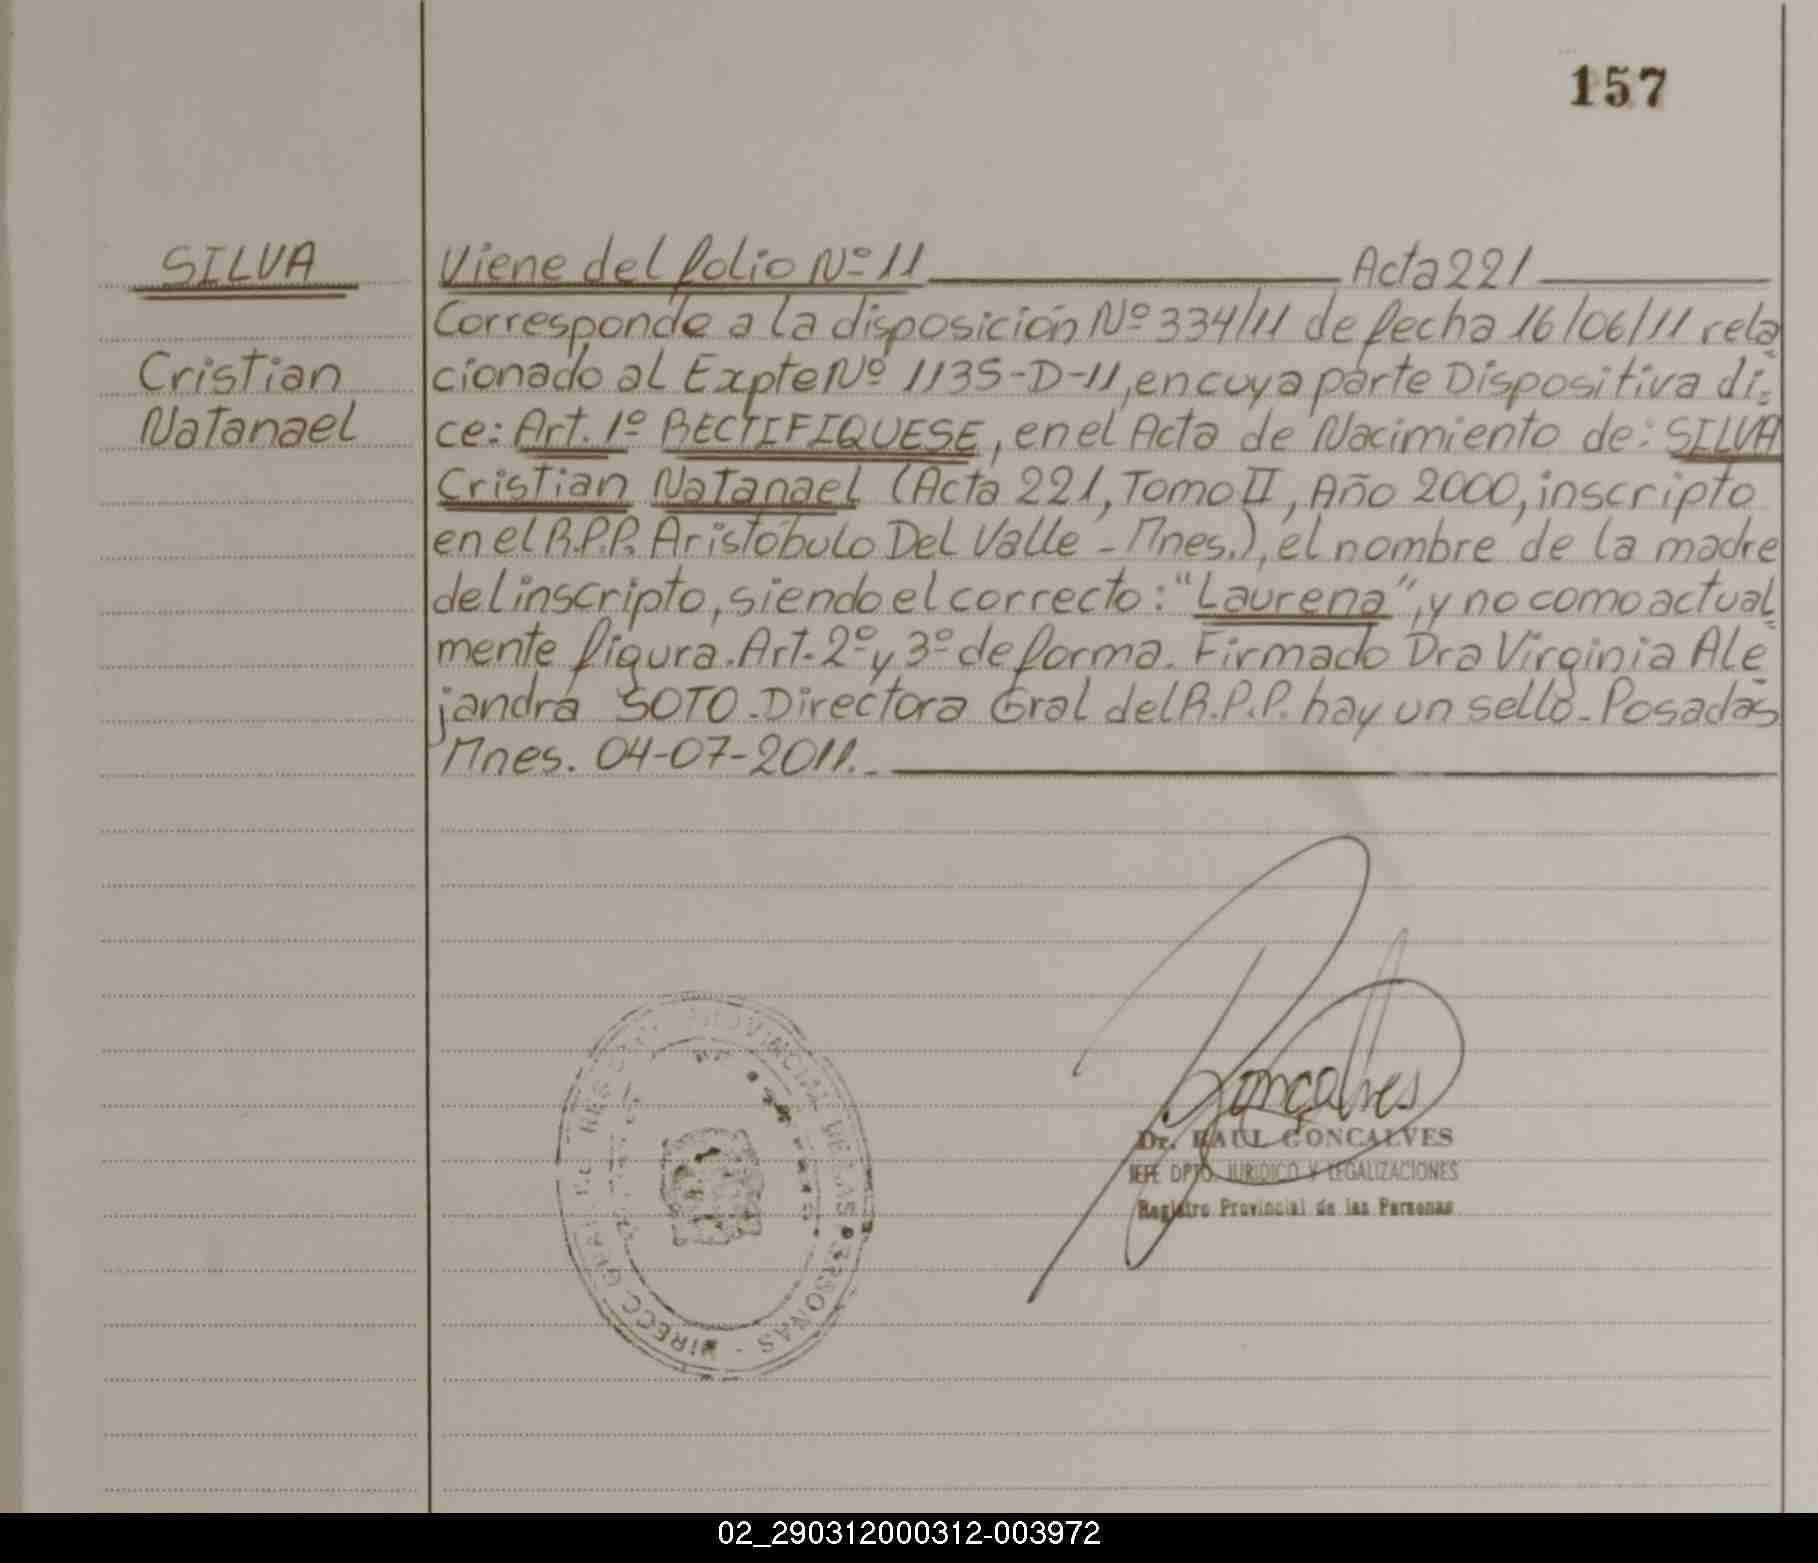 157
SILVA
Cristian
Natanael
Viene del folio Nº 11 Acta 221
Corresponde a la disposición Nº 334/11 de fecha 16/06/11 rela
cionado al Expte Nº 1135-D-11, en cuya parte Dispositiva di=
ce: Art. 1º RECTIFIQUESE, en el Acta de Nacimiento de: SILVA
Cristian Natanael (Acta 221, Tomo II, Año 2000, inscripto
en el R.P.P. Aristóbulo Del Valle - Mnes.), el nombre de la madre
del inscripto, siendo el correcto: "Laurena", y no como actual
mente figura. Art. 2º y 3º de forma. Firmado Dra Virginia Ale
jandra SOTO. Directora Gral del R.P.P. hay un sello. Posadas
Mnes. 04-07-2011.-
DIRECC GRAL REGISTRO PROVINCIAL DE LAS PERSONAS -
Gonçalves
Dr. RAUL GONCALVES
JEFE DPTO. JURIDICO Y LEGALIZACIONES
Registro Provincial de las Personas
02_290312000312-003972